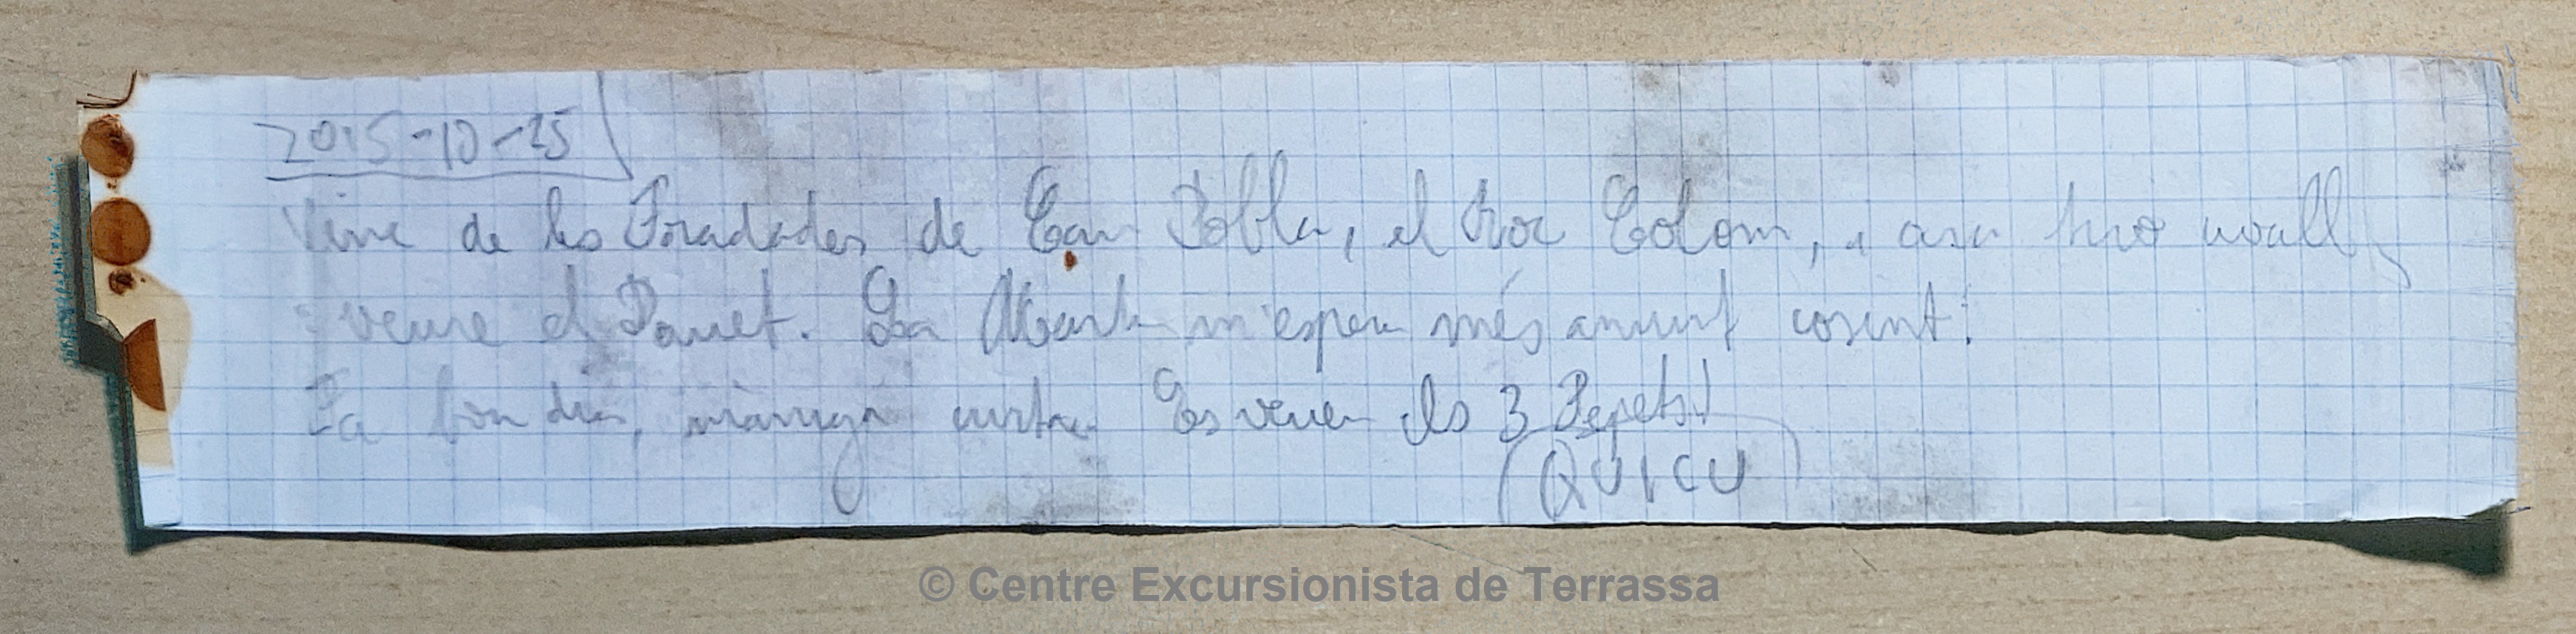 2015-10-25
Vinc de les Foradades de Can Pobla, el Roc Colom, i ara tiro avall
veure el Pauet. La Marta m'espera més amunt cosint!
Fa bon dia, màniga curta. Es veuen els 3 Pepets!
(QUICU)
© Centre Excursionista de Terrassa